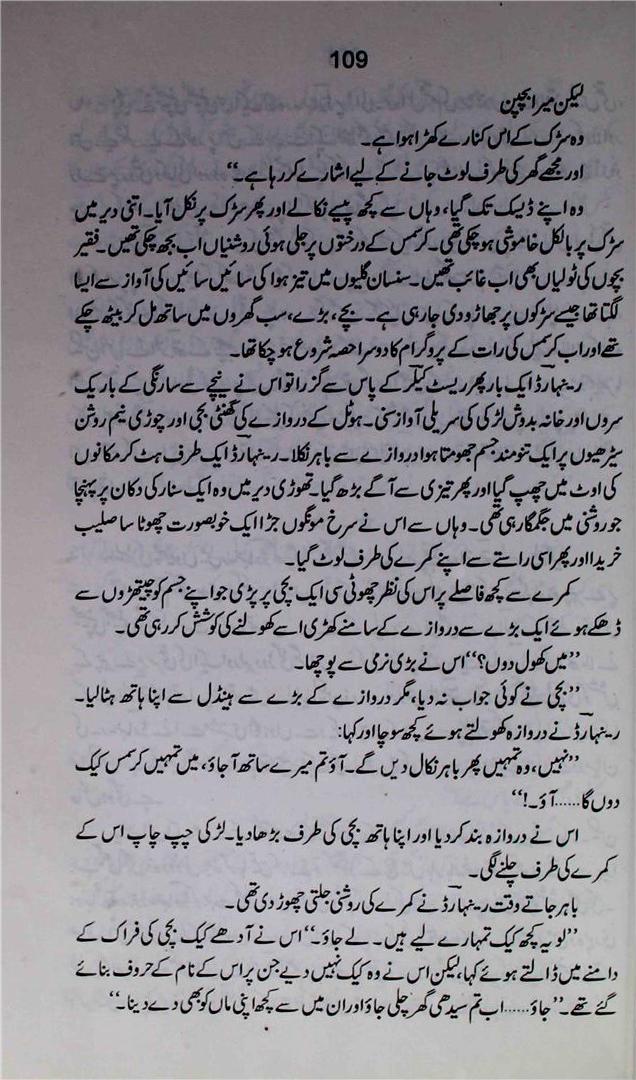 109
لیکن میرا بچپن
وہ سڑک کے اس کنارے کھڑا ہوا ہے۔
اور مجھے گھر کی طرف لوٹ جانے کے لیے اشارے کر رہا ہے۔‘‘
وہ اپنے ڈیسک تک گیا، وہاں سے کچھ پیسے نکالے اور پھر سڑک پر نکل آیا۔ اتنی دیر میں
سڑک پر بالکل خاموشی ہو چکی تھی۔ کرسمس کے درختوں پر جلی ہوئی روشنیاں اب بجھ چکی تھیں۔ فقیر
بچوں کی ٹولیاں بھی اب غائب تھیں۔ سنسان گلیوں میں تیز ہوا کی سائیں سائیں کی آواز سے ایسا
لگتا تھا جیسے سڑکوں پر جھاڑو دی جا رہی ہے۔ بچے، بڑے، سب گھروں میں ساتھ مل کر بیٹھ چکے
تھے اور اب کرسمس کی رات کے پروگرام کا دوسرا حصہ شروع ہو چکا تھا۔
رینہارڈ ایک بار پھر ریسٹ کیلر کے پاس سے گزرا تو اس نے نیچے سے سارنگی کے باریک
سروں اور خانہ بدوش لڑکی کی سریلی آواز سنی۔ ہوٹل کے دروازے کی گھنٹی بجی اور چوڑی نیم روشن
سیڑھیوں پر ایک تنومند جسم جھومتا ہوا دروازے سے باہر نکلا۔ رینہارڈ ایک طرف ہٹ کر مکانوں
کی اوٹ میں چھپ گیا اور پھر تیزی سے آگے بڑھ گیا۔ تھوڑی دیر میں وہ ایک سنار کی دکان پر پہنچا
جو روشنی میں جگمگا رہی تھی۔ وہاں سے اس نے سرخ مونگوں جڑا ایک خوبصورت چھوٹا سا صلیب
خریدا اور پھر اسی راستے سے اپنے کمرے کی طرف لوٹ گیا۔
کمرے سے کچھ فاصلے پر اس کی نظر چھوٹی سی ایک بچی پر پڑی جو اپنے جسم کو چیتھڑوں سے
ڈھکے ہوئے ایک بڑے سے دروازے کے سامنے کھڑی اسے کھولنے کی کوشش کر رہی تھی۔
’’میں کھول دوں؟‘‘ اس نے بڑی نرمی سے پوچھا۔
’’بچی نے کوئی جواب نہ دیا، مگر دروازے کے بڑے سے ہینڈل سے اپنا ہاتھ ہٹا لیا۔
رینہارڈ نے دروازہ کھولتے ہوئے کچھ سوچا اور کہا:
’’نہیں، وہ تمہیں پھر باہر نکال دیں گے۔ آؤ تم میرے ساتھ آ جاؤ، میں تمہیں کرسمس کیک
دوں گا...... آؤ۔!‘‘
اس نے دروازہ بند کر دیا اور اپنا ہاتھ بچی کی طرف بڑھا دیا۔ لڑکی چپ چاپ اس کے
کمرے کی طرف چلنے لگی۔
باہر جاتے وقت رینہارڈ نے کمرے کی روشنی جلتی چھوڑ دی تھی۔
’’لو یہ کچھ کیک تمہارے لیے ہیں۔ لے جاؤ۔‘‘ اس نے آدھے کیک بچی کی فراک کے
دامنے میں ڈالتے ہوئے کہا، لیکن اس نے وہ کیک نہیں دیے جن پر اس کے نام کے حروف بنائے
گئے تھے۔ ’’جاؤ...... اب تم سیدھی گھر چلی جاؤ اور ان میں سے کچھ اپنی ماں کو بھی دے دینا۔‘‘